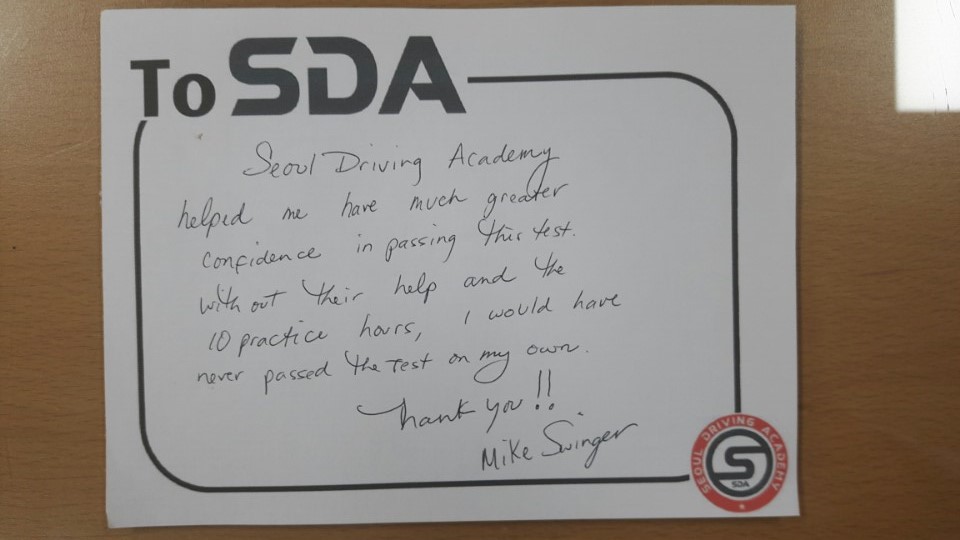 To SDA
Seoul Driving Academy
helped me have much greater
confidence in passing this test.
with out their help and the
10 practice hours, I would have
never passed the test on my own.
Thank you!!
Mike Swinger
SEOUL DRIVING ACADEMY
S
SDA